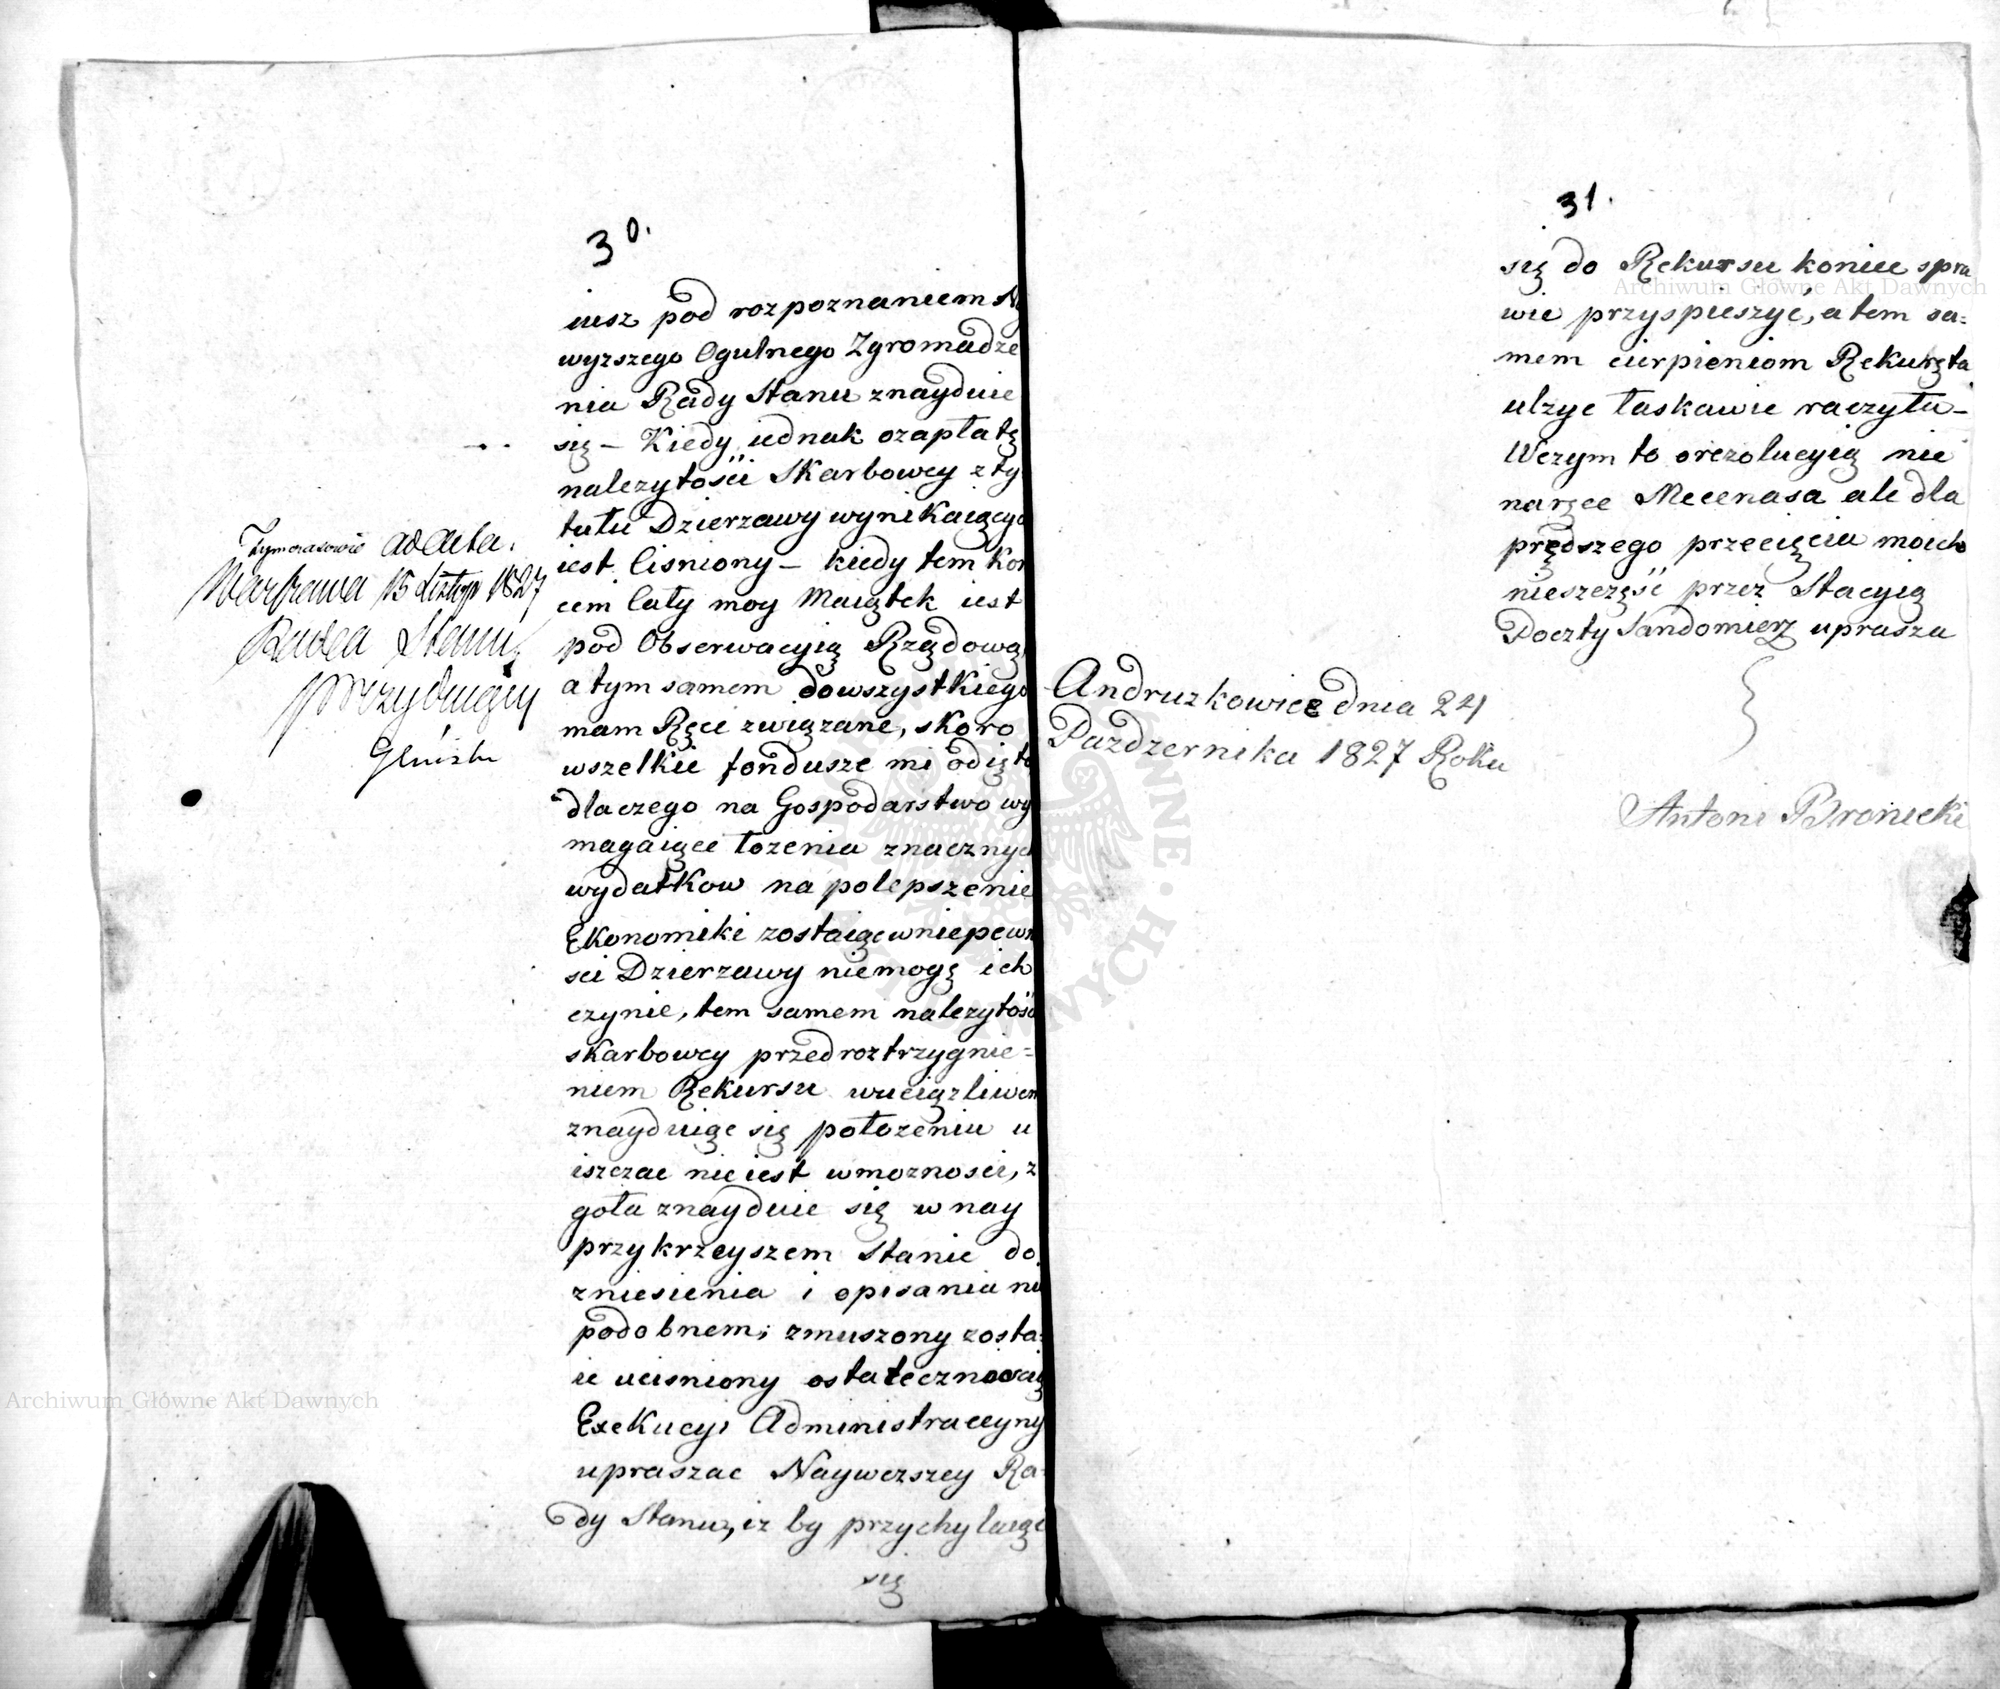 30.
iusz pod rozpoznaniem
wyzszego Ogulnego Zgromadze
nia Rady Stanu znayduie
się – Kiedy iednak ozapłatę
nalezytości Skarbowey z ty
tułu Dzierzawy wynikaiący
iest Cisniony – kiedy tem Kon
cem Cały moy Maiątek iest
pod Obserwacyią Rządową
a tym samem dowszystkiego
mam Ręce związane, skoro
wszelkie fondusze mi odięto
dlaczego na Gospodarstwo wy
magaiące łozenia znacznych
wydatkow na polepszenie
Ekonomiki zostaiąc wniepewn
sci Dzierzawy niemogę ich
czynie, tem samem nalezytośc
skarbowey przedroztrzygnie=
niem Rekursu wuciązliwem
znayduiąc się połozeniu u
iszczac nie iest wmoznosci, z
goła znayduie się w nay
przykrzeyszem Stanie do
zniesienia i opisania ni
podobnem; zmuszony zosta=
ie ucisniony ostatecznoscią
Exekucyi Administracyiny
upraszac Naywezszey Ra=
dy Stanu, iz by przychylaiąc
się
Tymczasowie ad acta.
Warszawa 15 Listop 1827
Radca Stanu
Prezyduiący
31.
się do Rekursu koniec spra
wie przyspieszyć, a tem sa=
mem cierpieniom Rekuręta
ulzyc łaskawie raczyła –
Wczym to orezolucyią nie
naręce Mecenasa ale dla
prędszego przecięcia moich
nieszczęść przez Stacyią
Poczty Sandomierz uprasza
Andruzkowice dnia 24
Pazdzernika 1827 Roku
Antoni Bronicki
Archiwum Główne Akt Dawnych
Archiwum Główne Akt Dawnych